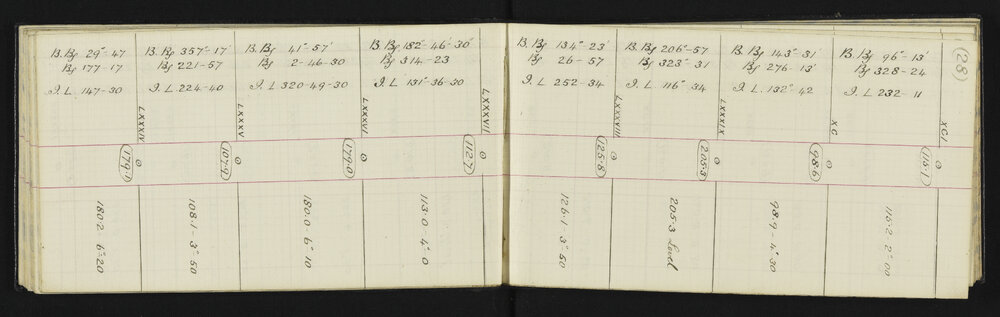 B. Bg 29°-47
Bg 177-17
I. L. 147-30
LXXXIV
0
179.0
180.2 6°20
B. Bg 357°-17'
Bg 221-57
I. L 224-40
LXXXV
0
107.9
108.1-3°50
B. Bg 41°-57'
Bg 2-46-30
I. L 320-49-30
LXXXVI
0
179.0
180.0 6°10
B. Bg 182°-46'-30"
Bg 314-23
I. L 131°-36-30
LXXXVII
0
112.7
113.0-4°0
B. Bg 134°-23'
Bg 26-57
I. L 252-34
LXXXVIII
0
125.8
126.1 3°50
B. Bg 206°-57
Bg 323°-31
I. L 116°-34
LXXXIX
0
205.3
205.3 Level
B. Bg 143°-31'
Bg 276-13'
I. L. 132°-42
XC
0
98.6
98.9-4°30
B. Bg 96°-13'
Bg 328-24
I. L 232-11
XCI
0
115.1
115.2 2°00
(28)